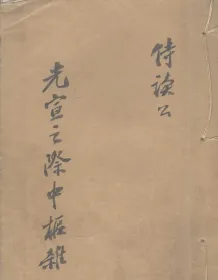 侍讀公
光宣之際中樞雜